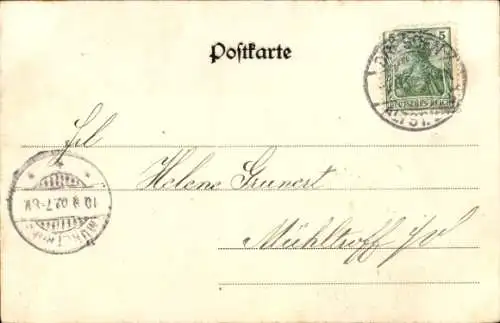 Postkarte
5
DEUTSCHES REICH
DRESDEN
ALTST.
Frl
Helene Grunert
Mühltroff i/V
10 8 02 7-8 N.